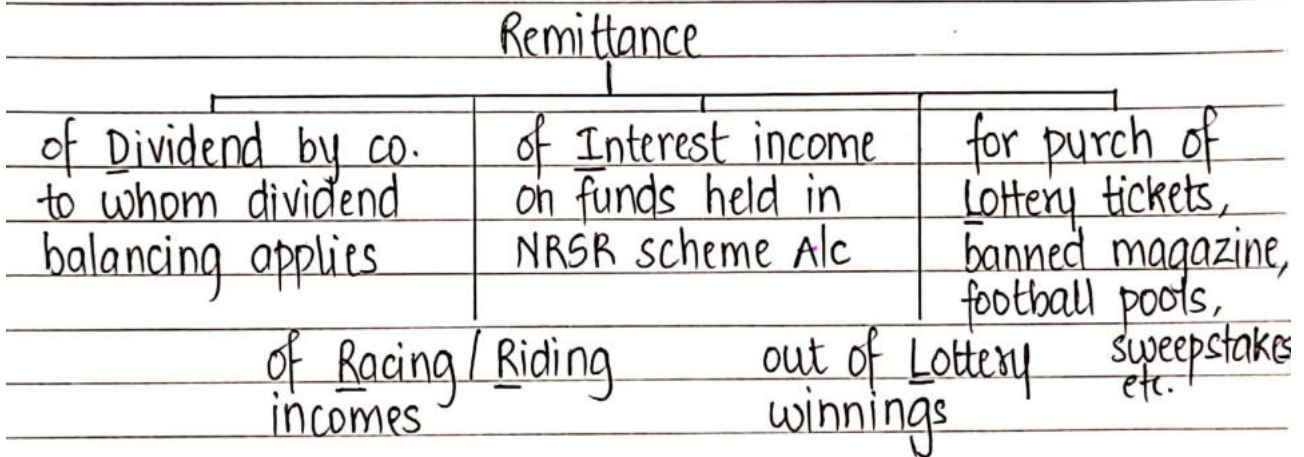 Remittance
of Dividend by co.
to whom dividend
balancing applies
of Interest income
on funds held in
NRSR scheme A/c
for purch of
Lottery tickets,
banned magazine,
football pools,
sweepstakes
etc.
of Racing / Riding
incomes
out of Lottery
winnings